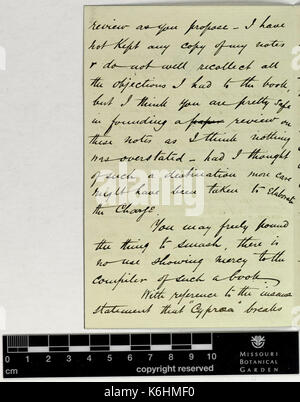 review as you propose - I have
not kept any copy of my notes
& do not well recollect all
the objections I had to the book,
but I think you are pretty safe
in founding a review on
these notes as I think nothing
was overstated - had I thought
of such a destination more care
might have been taken to Elaborate
the Charge.
You may freely pound
the thing to smash, there is
no use showing mercy to the
compiler of such a book.
With reference to the
statement that "Cyprœa" breaks
cm
0 1 2 3 4 5 6 7 8 9 10
copyright reserved
MISSOURI
BOTANICAL
GARDEN
alamy
alamy stock photo
K6HMF0